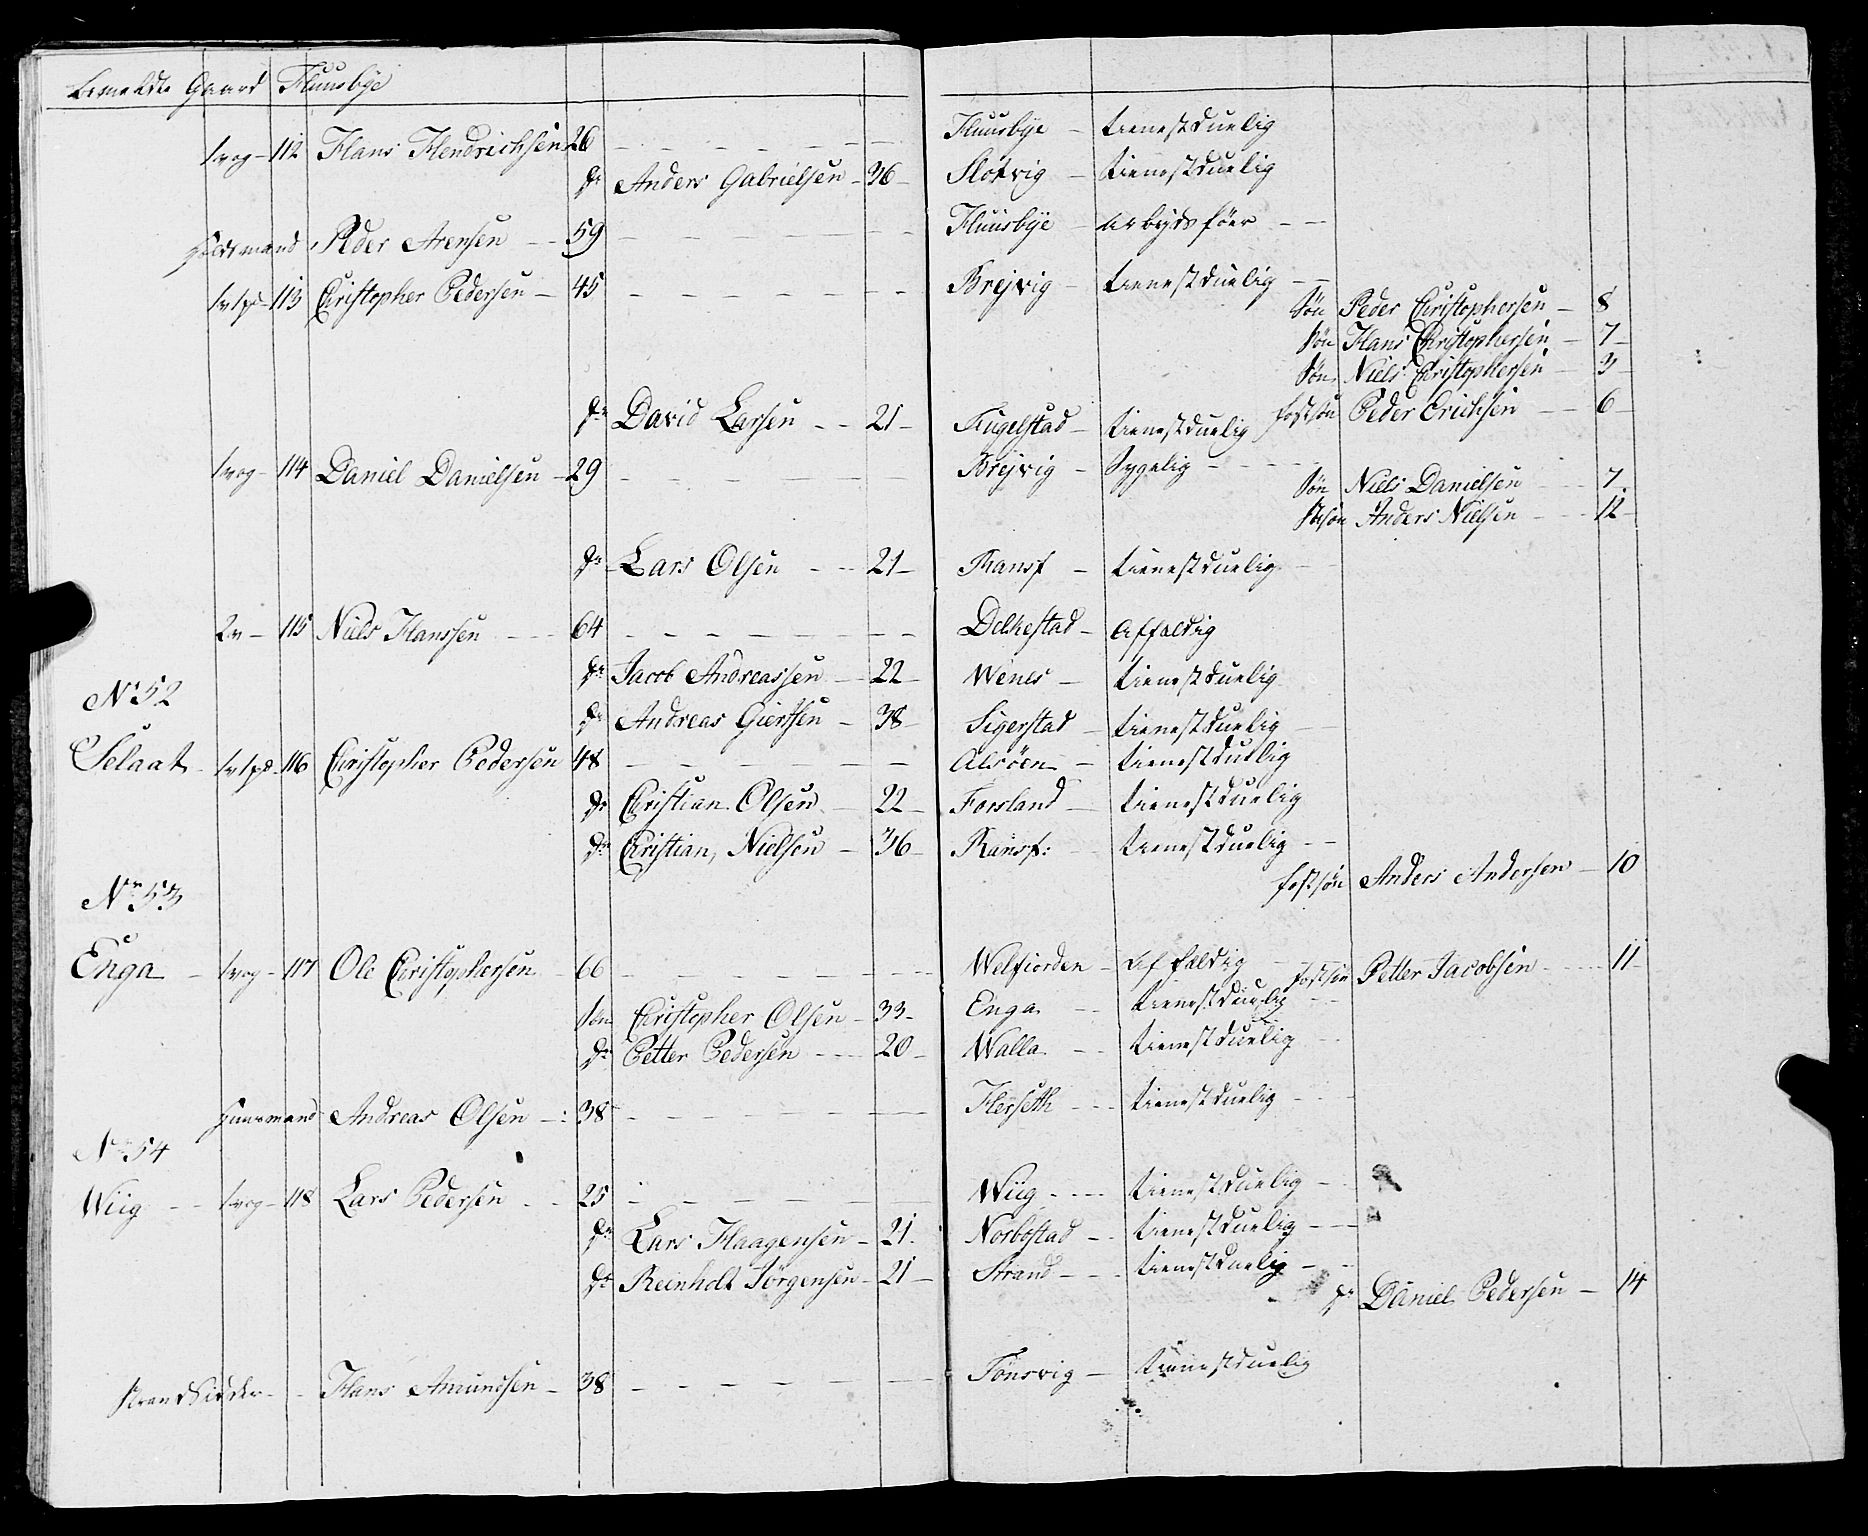 bemeldte Gaard Huusbye
1 vog - 112 Hans Hendrichsen 26 Huusbye - tienestduelig
dr Anders Gabrielsen - 36 - Slotvig - tienestduelig
Peder Arensen - - 59 Huusbÿe - Arbydsföer - -
1v1pd - 113 Christopher Pedersen - 45 Brejvig - tienestduelig - -
Søn Peder Christophersen - 8
Søn Hans Christophersen - 7 -
Søn Niels Christophersen - 3 -
dr David Larsen - - 21 - Hugelstad - tienestduelig fostsøn Peder Erichsen - - 6 -
1 vog - 114 Daniel Danielsen - 29 Brejvig - Sygelig - - - -
Søn Niels Danielsen - - 7.
Stesøn Anders Nielsen - - - 12 -
dr Lars Olsen - - - 21 - Ransf - tienestduelig -
2v - 115 Niels Hanssen - - - 64 Delkestad - Affældig
dr Jacob Andreassen - 22 - Wenes - tienestduelig
No 52
dr Andreas Gierssen - 38 - Sigerstad - tienestduelig -
Selaat - 1v1pd - 116 Christopher Pedersen 48 Alsøen - tienestduelig
dr Christian Olsen - 22 - Forsland - tienestduelig
dr Christian Nielsen - 36 - Ransf: - tienestduelig - -
fostsøn Anders Andersen - 10
No 53
Enga - 1 vog - 117 Ole Christophersen - 66 Welfiorden - Affældig - fostsøn Petter Jacobsen - - - 11 -
Søn Christopher Olsen - 33 - Enga - - tienestduelig - -
dr Petter Pedersen - - - 20 - Walla - - tienestduelig - -
Huusmand Andreas Olsen - : 38 Herseth - - - tienestduelig - - -
No 54
Wiig - - 1 vog - 118 Lars Pedersen - - 25 Wiig - - - - tienestduelig - -
dr Lars Haagensen - 21. Norbostad - - tienestduelig - - -
dr Reinholt Jørgensen - 21 - Strand - - - tienestduelig - -
dr Daniel Pedersen - 14
Strandsidder - - Hans Amundsen - 38 Tönsvig - tienestduelig